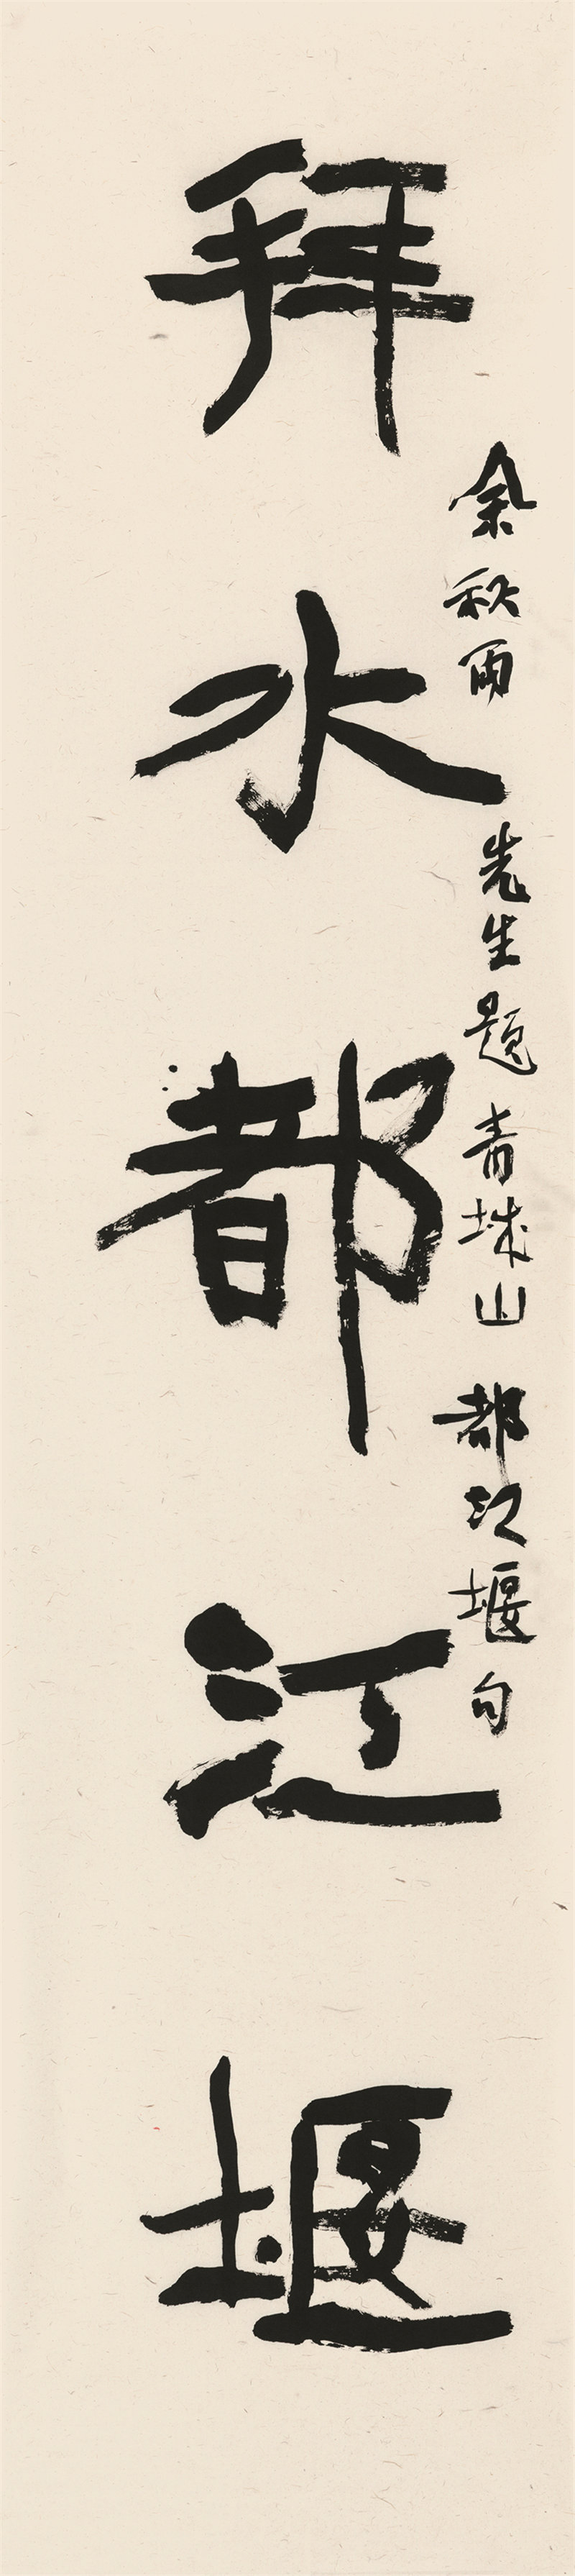 余秋雨先生题青城山都江堰句
拜水都江堰